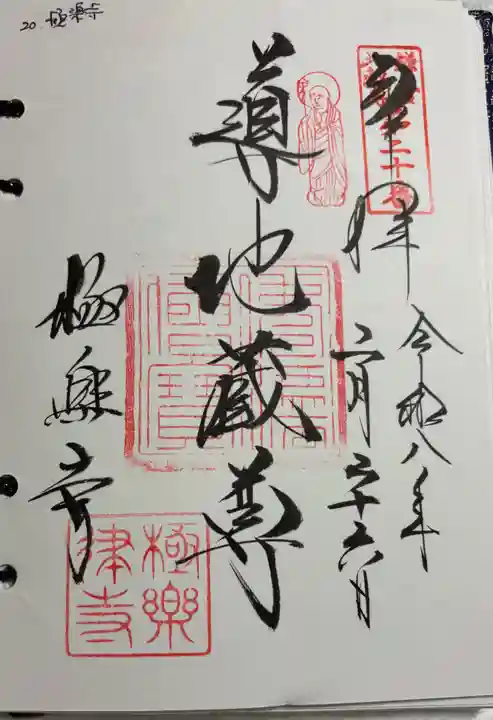 20. 極楽寺
奉拝
令和八年
二月二十六日
導地蔵尊
極楽寺
二十
極樂律寺